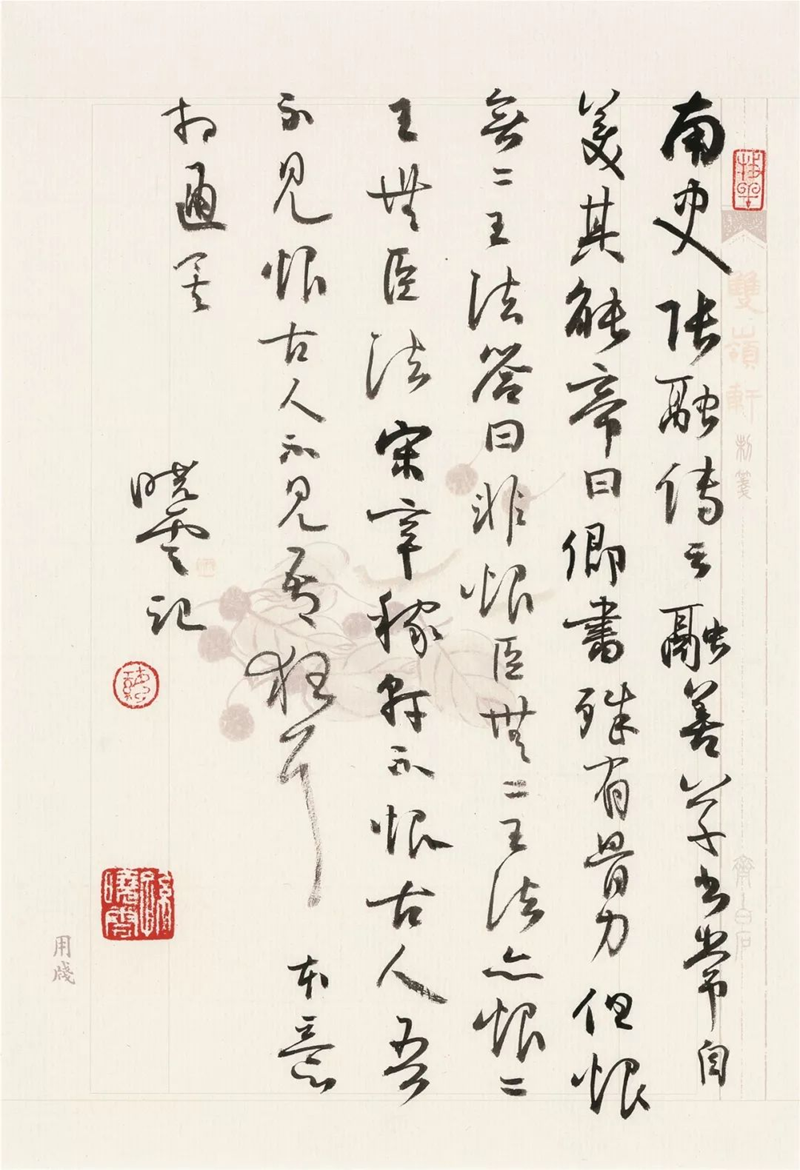 雙嶺軒 制箋
齊白石
南史張融傳云融善草書常自
美其能帝曰卿書殊有骨力但恨
無二王法答曰非恨臣無二王法亦恨二
王無臣法宋辛稼軒不恨古人吾
不見恨古人不見吾狂耳 本意
相通矣
曉雲記
孫曉雲
用牋